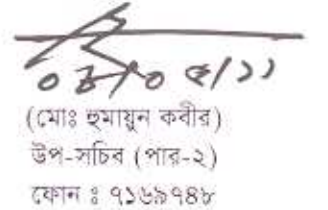 ০৪/০৫/১১
(মোঃ হুমায়ুন কবীর)
উপ-সচিব (পার-২)
ফোন ঃ ৭১৬৯৭৪৮